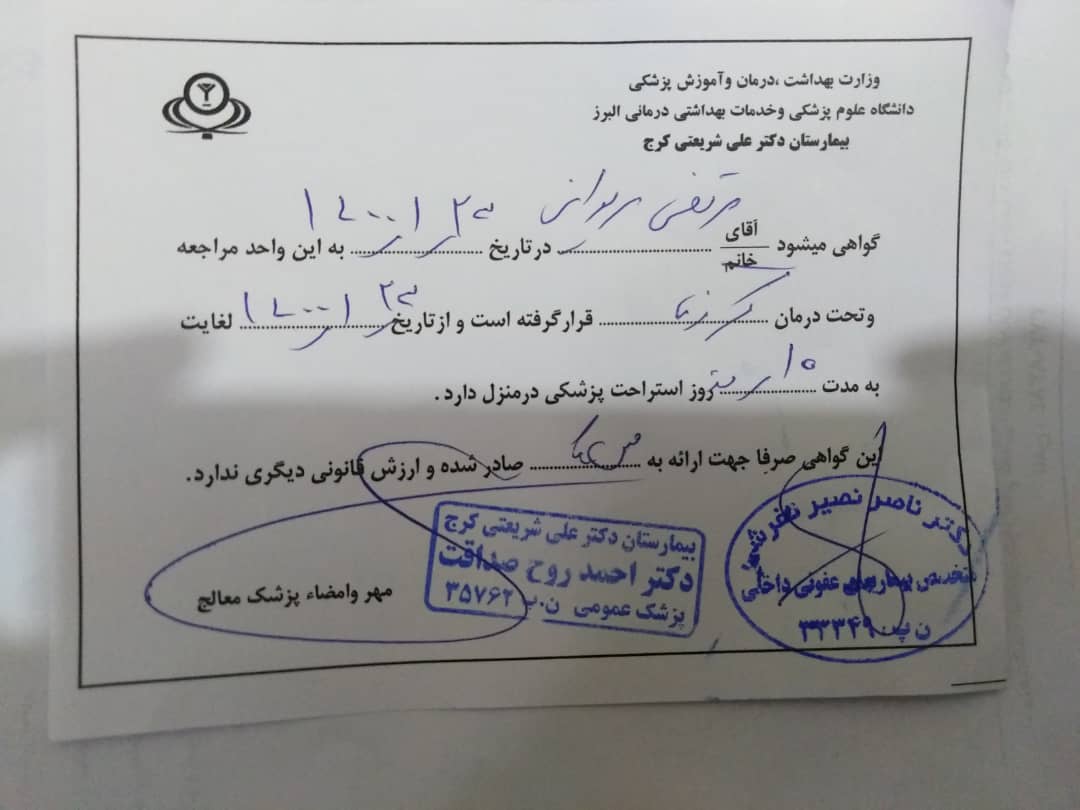 وزارت بهداشت ،درمان وآموزش پزشکی
دانشگاه علوم پزشکی وخدمات بهداشتی درمانی البرز
بیمارستان دکتر علی شریعتی کرج
گواهی میشود آقای خانم مرتضی درتاریخ به این واحد مراجعه
وتحت درمان کرونا قرارگرفته است و ازتاریخ لغایت
به مدت ۱۰ روز استراحت پزشکی درمنزل دارد.
این گواهی صرفا جهت ارائه به صادر شده و ارزش قانونی دیگری ندارد.
مهر وامضاء پزشک معالج
بیمارستان دکتر علی شریعتی کرج
دکتر احمد روح صداقت
پزشک عمومی ن.پ ۳۵۷۶۲
دکتر ناصر نصیر
متخصص بیماریهای عفونی داخلی
ن پ ۳۳۳۴۹